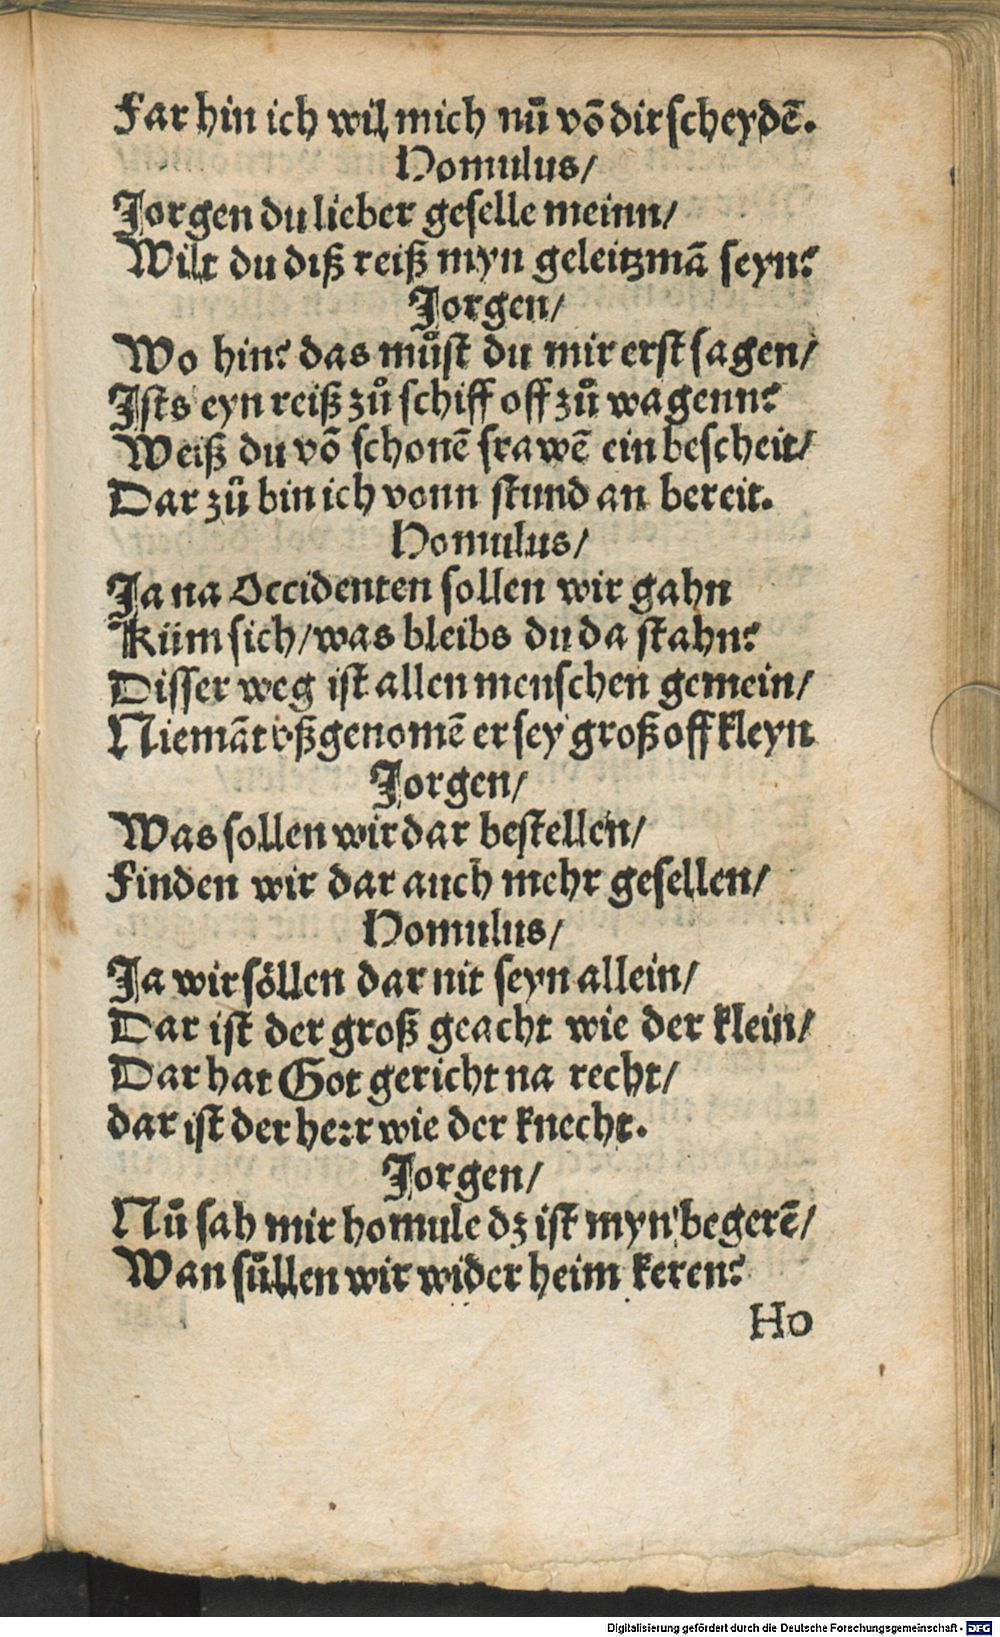 Far hin ich wil mich nů võ dir scheydẽ.
Homulus/
Jorgen du lieber geselle meinn/
Wilt du diß reiß myn geleitzmã seyn?
Jorgen/
Wo hin? das můst du mir erst sagen/
Jsts eyn reiß zů schiff off zů wagenn?
Weiß du võ schonẽ frawẽ ein bescheit/
Dar zů bin ich vonn stund an bereit.
Homulus/
Ja na Occidenten sollen wir gahn
Küm sich/was bleibs du da stahn?
Disser weg ist allen menschen gemein/
Niemãt vßgenomẽ er sey groß off kleyn
Jorgen/
Was sollen wir dar bestellen/
Finden wir dar auch mehr gesellen/
Homulus/
Ja wir söllen dar nit seyn allein/
Dar ist der groß geacht wie der klein/
Dar hat Got gericht na recht/
dar ist der heꝛr wie der knecht.
Jorgen/
Nů sah mir homule dz ist myn begerẽ/
Wan sůllen wir wider heim keren?
Ho
Digitalisierung gefördert durch die Deutsche Forschungsgemeinschaft - DFG